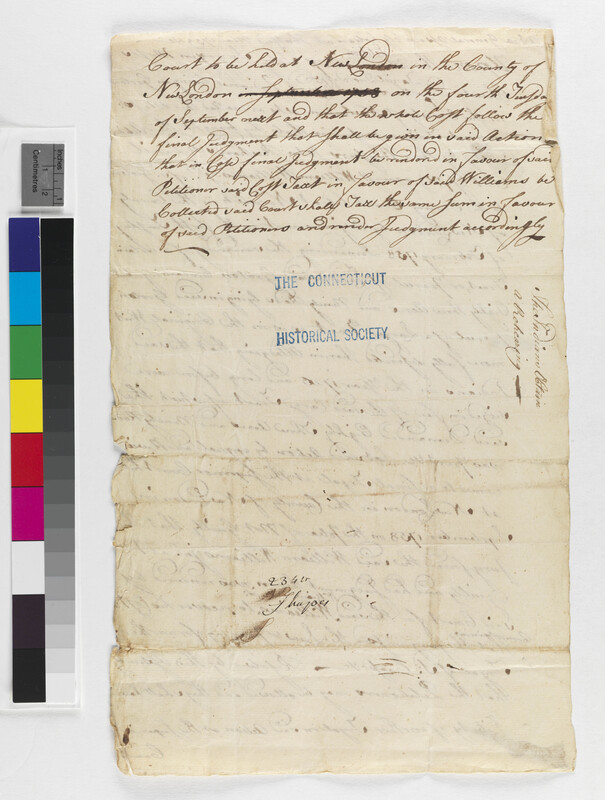 Court to be held at New London in the County of
New London in September 1758 on the fourth Tuesday
of September next and that the whole Cost follow the
final Judgment that shall be given in said Action
that in Case final Judgment be rendred in favour of said
Petitioner said Cost Taxt in favour of said Williams be
Collected said Court shall Tax the same Sum in favour
of said Petitioners and render Judgment accordingly
THE CONNECTICUT
HISTORICAL SOCIETY
The Indians Obtain
a Rehearing